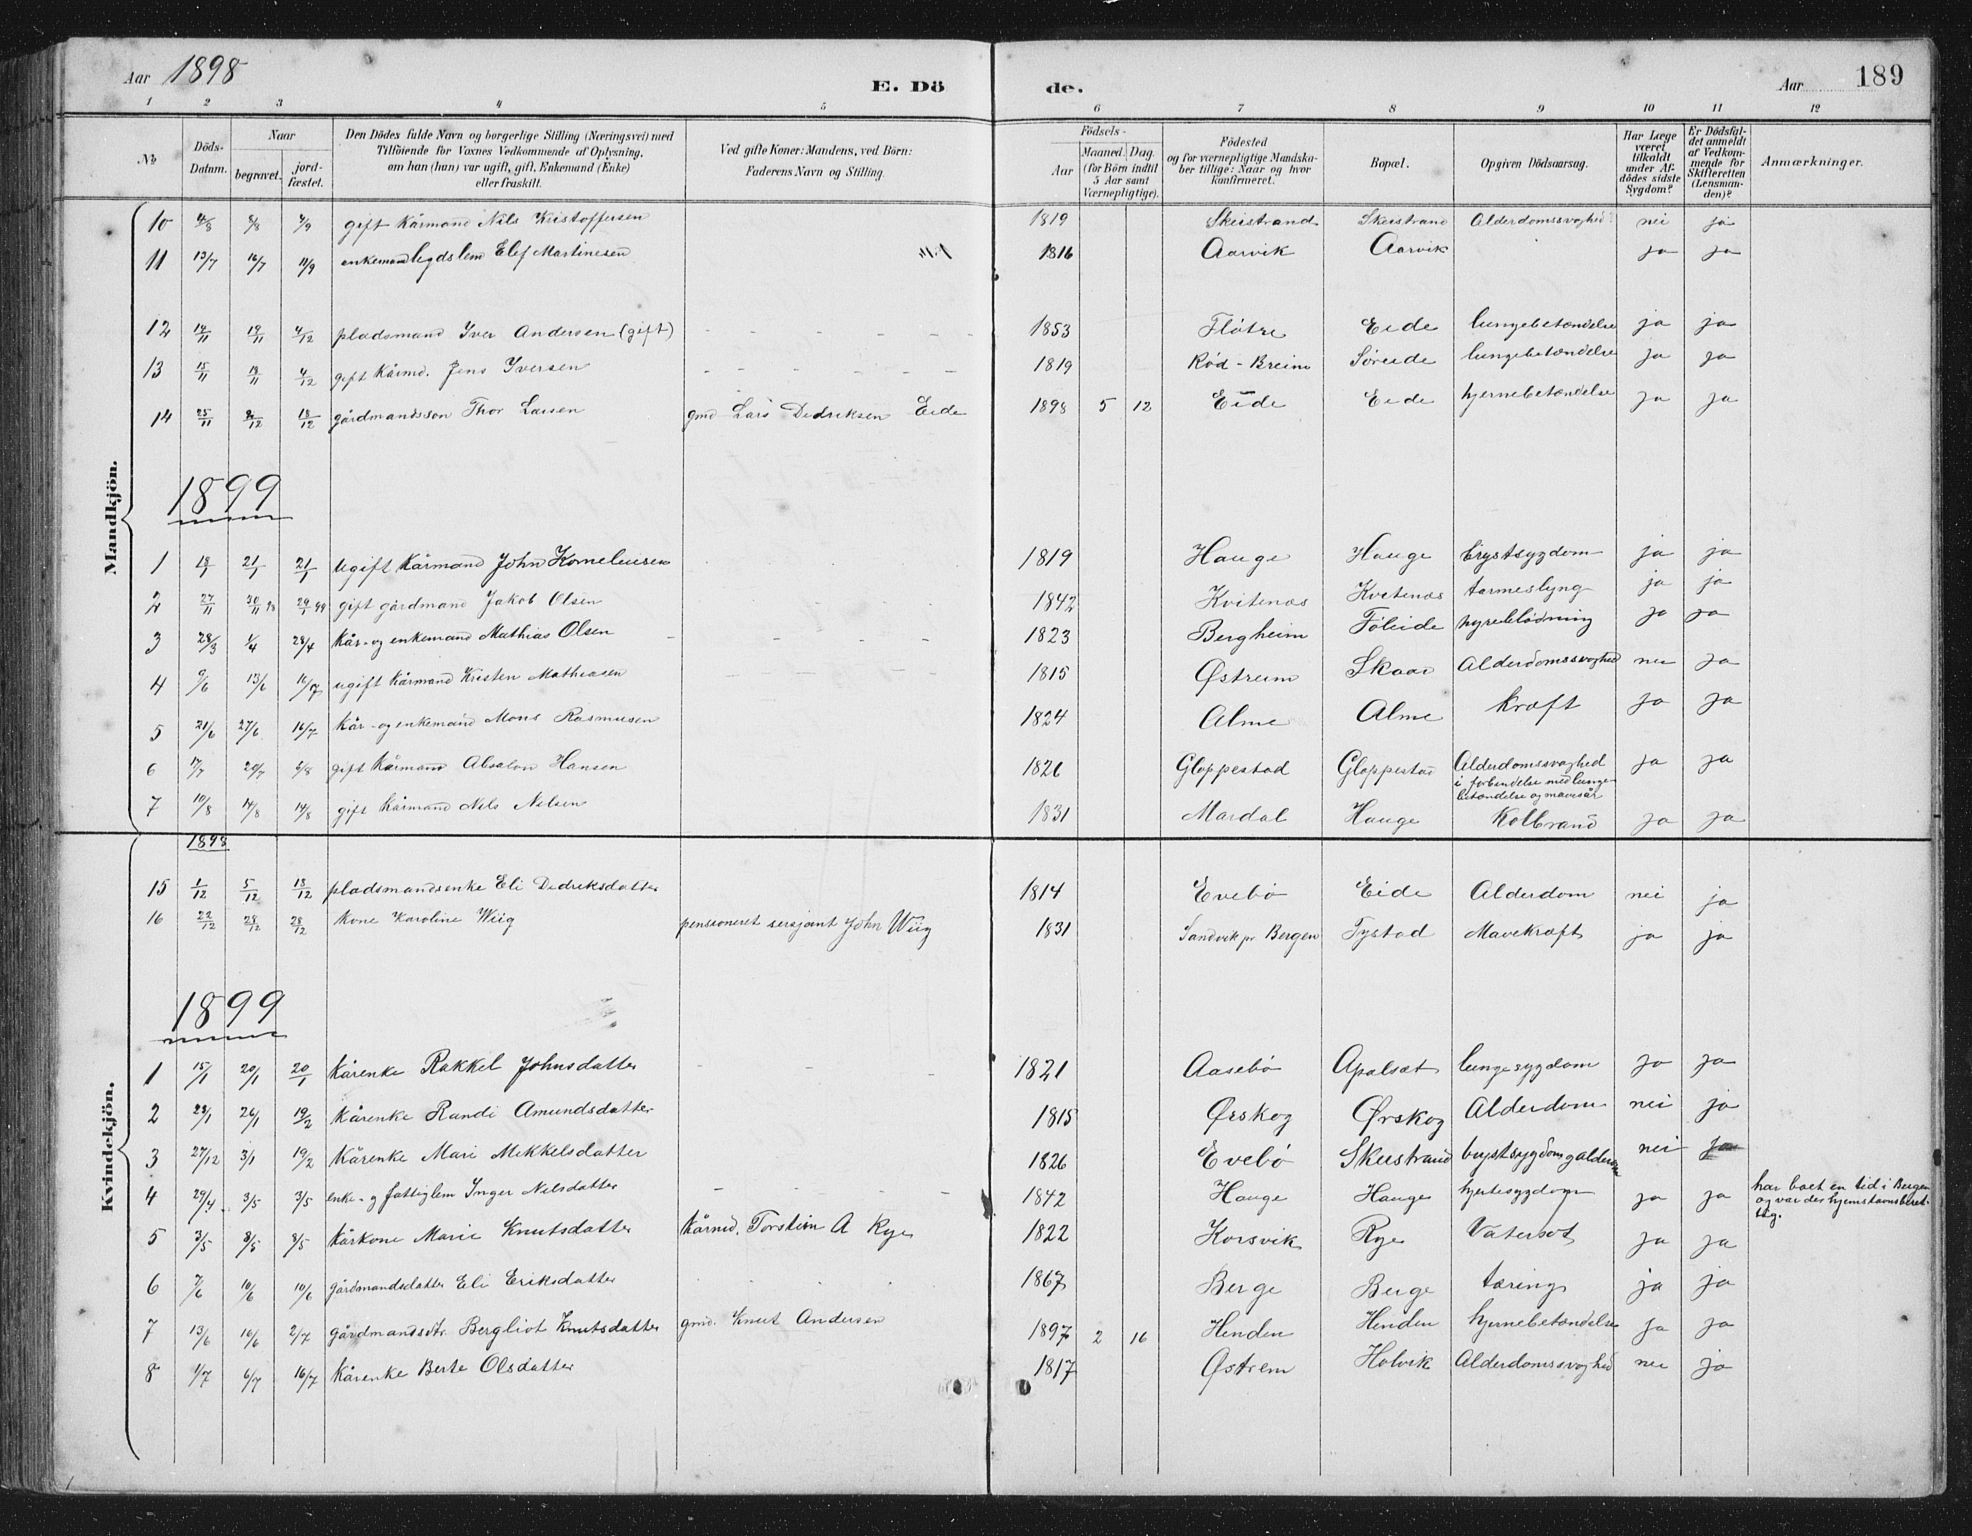 Aar 1898 E. Dö de. Aar 189
1 2 3 4 5 6 7 8 9 10 11 12
No
Döds-Datum.
Naar
begravet.
jord-fæstet.
Den Dödes fulde Navn og borgerlige Stilling (Næringsvei) med
Tilföiende for Voxnes Vedkommende af Oplysning,
om han (hun) var ugift, gift, Enkemand (Enke)
eller fraskilt.
Ved gifte Koner: Mandens, ved Börn:
Faderens Navn og Stilling.
Födsels-
Aar
Maaned. Dag.
(for Börn indtil
5 Aar samt
Værnepligtige).
Födested
og for værnepligtige Mandska-
ber tillige: Naar og hvor
konfirmeret.
Bopæl.
Opgiven Dödsaarsag.
Har Læge
været
tilkaldt
under Af-
dödes sidste
Sygdom?
Er Dödsfal-
det anmeldt
af Vedkom-
mende for
Skifteretten
(Lensman-
den)?
Anmærkninger.
Mandkjön.
10 4/8 8/8 4/9 gift Kårmand Nils Kristoffersen 1819 Skeistrand Skeistrand Alderdomssvaghed nei ja
11 13/7 16/7 11/9 enkemand legdslem Elef Martinesen 1816 Aarvik Aarvik ja ja
12 14/11 19/11 4/12 pladsmand Iver Andersen (gift) 1853 Fløtre Eide lungebetændelse ja ja
13 15/11 19/11 4/12 gift Kårmd. Jens Iversen 1819 Rød - Breim Søreide lungebetændelse ja ja
14 25/11 2/12 18/12 gårdmandssøn Thor Larsen gmd Lars Dedriksen Eide 1898 5 12 Eide Eide hjernebetændelse ja ja
1899
1 18/1 21/1 21/1 ugift Kårmand John Korneliusen 1819 Hauge Hauge brystsygdom ja ja
2 27/11 30/11 98 29/1 99 gift gårdmand Jakob Olsen 1842 Kvitenæs Kvitenæs tarmeslyng ja ja
3 28/3 1/4 28/4 Kår- og enkemand Mathias Olsen 1823 Bergheim Føleide nyreblødning ja ja
4 9/6 13/6 16/7 ugift Kårmand Kristen Mathiasen 1815 Østreim Skaar Alderdomssvaghed nei ja
5 21/6 27/6 16/7 Kår- og enkemand Mons Rasmusen 1824 Alme Alme kræft ja ja
6 17/7 20/7 6/8 gift Kårmann Absalon Hansen 1826 Gloppestad Gloppestad Alderdomssvaghed
i forbindelse med lunge-
betændelse og mavesår ja ja
7 10/8 14/8 14/8 gift kårmand Nils Nilsen 1831 Mardal Hauge Kolbrand ja ja
Kvindekjön.
1898
15 1/12 5/12 18/12 pladsmandsenke Eli Dedriksdatter 1814 Evebø Eide Alderdom nei ja
16 22/12 28/12 28/12 Kone Karoline Wiig pensioneret sersjant John Wiig 1831 Sandvik pr Bergen Tystad Mavekræft ja ja
1899
1 15/1 20/1 20/1 Kårenke Rakkel Johnsdatter 1821 Aasebø Apalsæt lungesygdom ja ja
2 23/1 26/1 19/2 Kårenke Randi Amundsdatter 1815 Ørskog Ørskog Alderdom nei ja
3 27/12 3/1 19/2 Kårenke Mari Mikkelsdatter 1826 Evebø Skeistrand brystsygdom og alderdom nei ja
4 29/4 3/5 3/5 enke- og fattiglem Inger Nilsdatter 1842 Hauge Hauge hjertesygdom ja ja har boet en tid i Bergen
og var der hjemstavnsberet-
tig.
5 3/5 8/5 8/5 Kårkone Marie Knutsdatter Kårmd. Torstein A Rye 1822 Korsvik Rye Vatersot ja ja
6 7/6 10/6 10/6 gårdmandsdatter Eli Eriksdatter 1867 Berge Berge tæring ja ja
7 13/6 16/6 2/7 gårdmandsdtr. Bergliot Knutsdatter gmd. Knut Andersen 1897 2 16 Henden Henden hjernebetændelse ja ja
8 1/7 6/7 16/7 Kårenke Berte Olsdatter 1817 Østrem Holvik Alderdomssvaghed nei ja